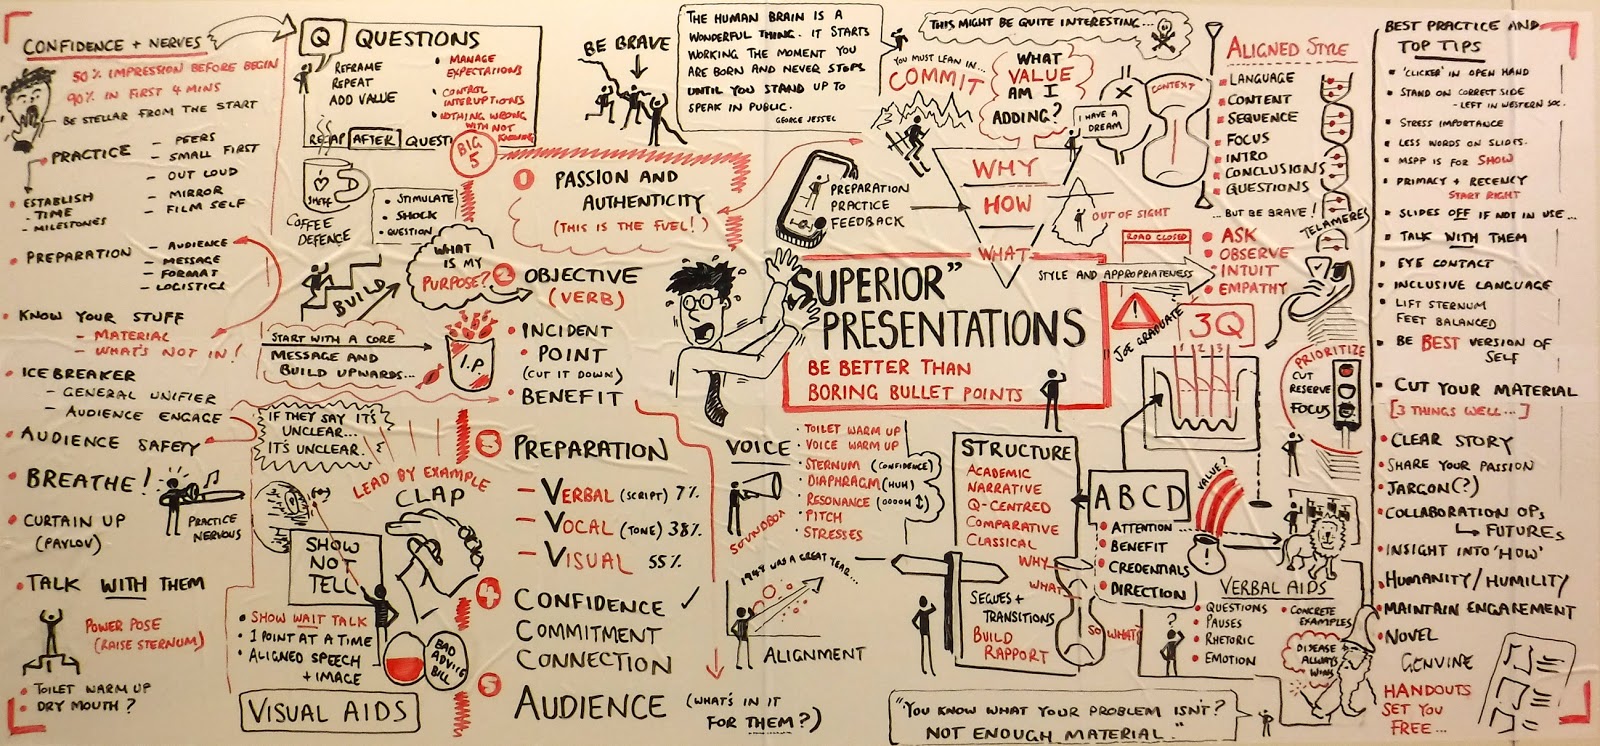 CONFIDENCE + NERVES
50% IMPRESSION BEFORE BEGIN
90% IN FIRST 4 MINS
BE STELLAR FROM THE START
PRACTICE
- PEERS
- SMALL FIRST
- OUT LOUD
- MIRROR
- FILM SELF
ESTABLISH
- TIME
- MILESTONES
PREPARATION
- AUDIENCE
- MESSAGE
- FORMAT
- LOGISTICS
KNOW YOUR STUFF
- MATERIAL
- WHAT'S NOT IN!
ICE BREAKER
- GENERAL UNIFIER
- AUDIENCE ENGAGE
AUDIENCE SAFETY
BREATHE!
PRACTICE
NERVOUS
CURTAIN UP
(PAVLOV)
TALK WITH THEM
POWER POSE
(RAISE STERNUM)
TOILET WARM UP
DRY MOUTH?
Q QUESTIONS
REFRAME
REPEAT
ADD VALUE
MANAGE
EXPECTATIONS
CONTROL
INTERUPTIONS
NOTHING WRONG
WITH NOT
KNOWING
RECAP AFTER QUESTI
COFFEE
DEFENCE
STIMULATE
SHOCK
QUESTION
WHAT
IS MY
PURPOSE?
BUILD
START WITH A CORE
MESSAGE AND
BUILD UPWARDS...
I.P.
IF THEY SAY IT'S
UNCLEAR...
IT'S UNCLEAR.
LEAD BY EXAMPLE
CLAP
SHOW
NOT
TELL
SHOW WAIT TALK
1 POINT AT A TIME
ALIGNED SPEECH
+ IMAGE
BAD
ADVICE
BILL
VISUAL AIDS
BIG
5
1 PASSION AND
AUTHENTICITY
(THIS IS THE FUEL!)
2 OBJECTIVE
(VERB)
INCIDENT
POINT
(CUT IT DOWN)
BENEFIT
3 PREPARATION
- VERBAL (SCRIPT) 7%
- VOCAL (TONE) 38%
- VISUAL 55%
4 CONFIDENCE ✓
COMMITMENT
CONNECTION
5 AUDIENCE (WHAT'S IN IT
FOR THEM?)
BE BRAVE
THE HUMAN BRAIN IS A
WONDERFUL THING. IT STARTS
WORKING THE MOMENT YOU
ARE BORN AND NEVER STOPS
UNTIL YOU STAND UP TO
SPEAK IN PUBLIC.
GEORGE JESSEL
PREPARATION
PRACTICE
FEEDBACK
YOU MUST LEAN IN...
COMMIT
THIS MIGHT BE QUITE INTERESTING...
WHAT
VALUE
AM I
ADDING?
I HAVE A
DREAM
CONTEXT
WHY
HOW
WHAT
OUT OF SIGHT
"SUPERIOR"
PRESENTATIONS
BE BETTER THAN
BORING BULLET POINTS
VOICE
TOILET WARM UP
VOICE WARM UP
STERNUM (CONFIDENCE)
DIAPHRAGM (HUH)
RESONANCE (OOOOH ↕)
PITCH
STRESSES
SOUNDBOX
1948 WAS A GREAT YEAR...
ALIGNMENT
STRUCTURE
ACADEMIC
NARRATIVE
Q-CENTRED
COMPARATIVE
CLASSICAL
WHY
WHAT
SO WHAT?
SEGUES +
TRANSITIONS
BUILD
RAPPORT
ABCD
ATTENTION
BENEFIT
CREDENTIALS
DIRECTION
ALIGNED STYLE
LANGUAGE
CONTENT
SEQUENCE
FOCUS
INTRO
CONCLUSIONS
QUESTIONS
...BUT BE BRAVE!
TELAMERES
ROAD CLOSED
STYLE AND APPROPRIATENESS
ASK
OBSERVE
INTUIT
EMPATHY
JOE GRADUATE
3Q
1 2 3
PRIORITIZE
CUT
RESERVE
FOCUS
VALUE?
VERBAL AIDS
QUESTIONS
PAUSES
RHETORIC
EMOTION
CONCRETE
EXAMPLES
DISEASE
ALWAYS
WINS
"YOU KNOW WHAT YOUR PROBLEM ISN'T?
NOT ENOUGH MATERIAL."
BEST PRACTICE AND
TOP TIPS
'CLICKER' IN OPEN HAND
STAND ON CORRECT SIDE
- LEFT IN WESTERN SOC.
STRESS IMPORTANCE
LESS WORDS ON SLIDES.
MSPP IS FOR SHOW
PRIMACY + RECENCY
START RIGHT
SLIDES OFF IF NOT IN USE...
TALK WITH THEM
EYE CONTACT
INCLUSIVE LANGUAGE
LIFT STERNUM
FEET BALANCED
BE BEST VERSION OF
SELF
CUT YOUR MATERIAL
[3 THINGS WELL...]
CLEAR STORY
SHARE YOUR PASSION
JARGON(?)
COLLABORATION OPs
FUTUREs
INSIGHT INTO 'HOW'
HUMANITY/HUMILITY
MAINTAIN ENGAREMENT
NOVEL
GENUINE
HANDOUTS
SET YOU
FREE...